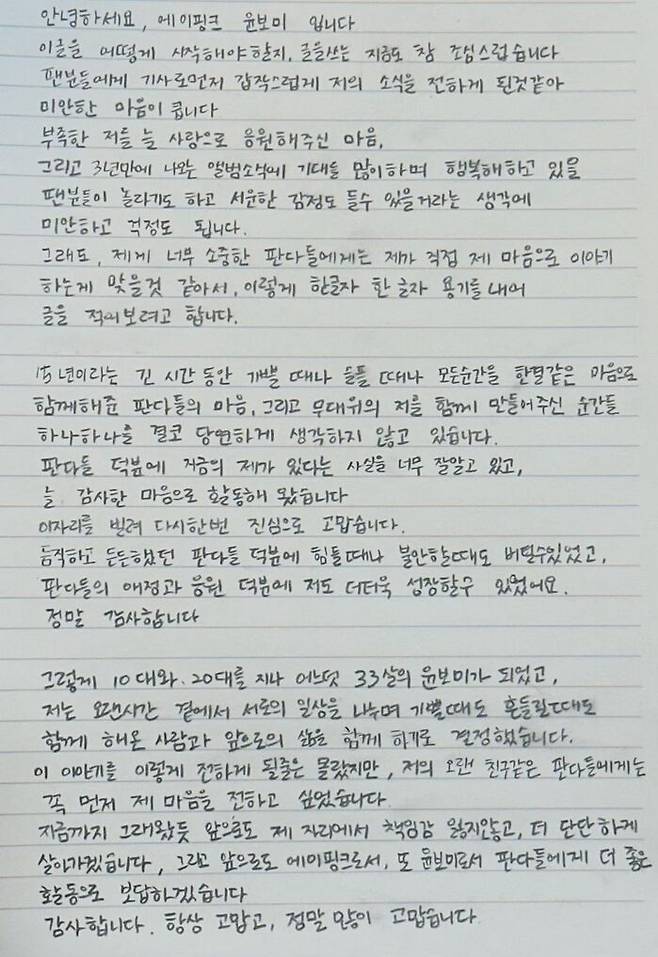 안녕하세요, 에이핑크 윤보미 입니다
이글을 어떻게 시작해야할지, 글을쓰는 지금도 참 조심스럽습니다
팬분들에게 기사로먼저 갑작스럽게 저의 소식을 전하게 된것같아
미안한 마음이 큽니다
부족한 저를 늘 사랑으로 응원해주신 마음,
그리고 3년만에 나오는 앨범소식에 기대를 많이하며 행복해하고 있을
팬분들이 놀라기도 하고 서운한 감정도 들수 있을거라는 생각에
미안하고 걱정도 됩니다.
그래도, 제게 너무 소중한 판다들에게는 제가 직접 제 마음으로 이야기
하는게 맞을것 같아서, 이렇게 한글자 한 글자 용기를 내어
글을 적어보려고 합니다.
15년이라는 긴 시간 동안 기쁠 때나 슬플 때나 모든순간을 한결같은 마음으로
함께해준 판다들의 마음, 그리고 무대위의 저를 함께 만들어주신 순간들
하나하나를 결코 당연하게 생각하지 않고 있습니다.
판다들 덕분에 지금의 제가 있다는 사실을 너무 잘알고 있고,
늘 감사한 마음으로 활동해 왔습니다
이자리를 빌려 다시한번 진심으로 고맙습니다.
듬직하고 든든했던 판다들 덕분에 힘들때나 불안할때도 버틸수있었고,
판다들의 애정과 응원 덕분에 저도 더더욱 성장할수 있었어요.
정말 감사합니다
그렇게 10대와 20대를 지나 어느덧 33살의 윤보미가 되었고,
저는 오랜시간 곁에서 서로의 일상을 나누며 기쁠때도 흔들릴때도
함께 해온 사람과 앞으로의 삶을 함께 하기로 결정했습니다.
이 이야기를 이렇게 전하게 될줄은 몰랐지만, 저의 오랜 친구같은 판다들에게는
꼭 먼저 제 마음을 전하고 싶었습니다
지금까지 그래왔듯 앞으로도 제 자리에서 책임감 잃지않고, 더 단단하게
살아가겠습니다, 그리고 앞으로도 에이핑크로서, 또 윤보미로서 판다들에게 더 좋은
활동으로 보답하겠습니다
감사합니다. 항상 고맙고, 정말 많이 고맙습니다